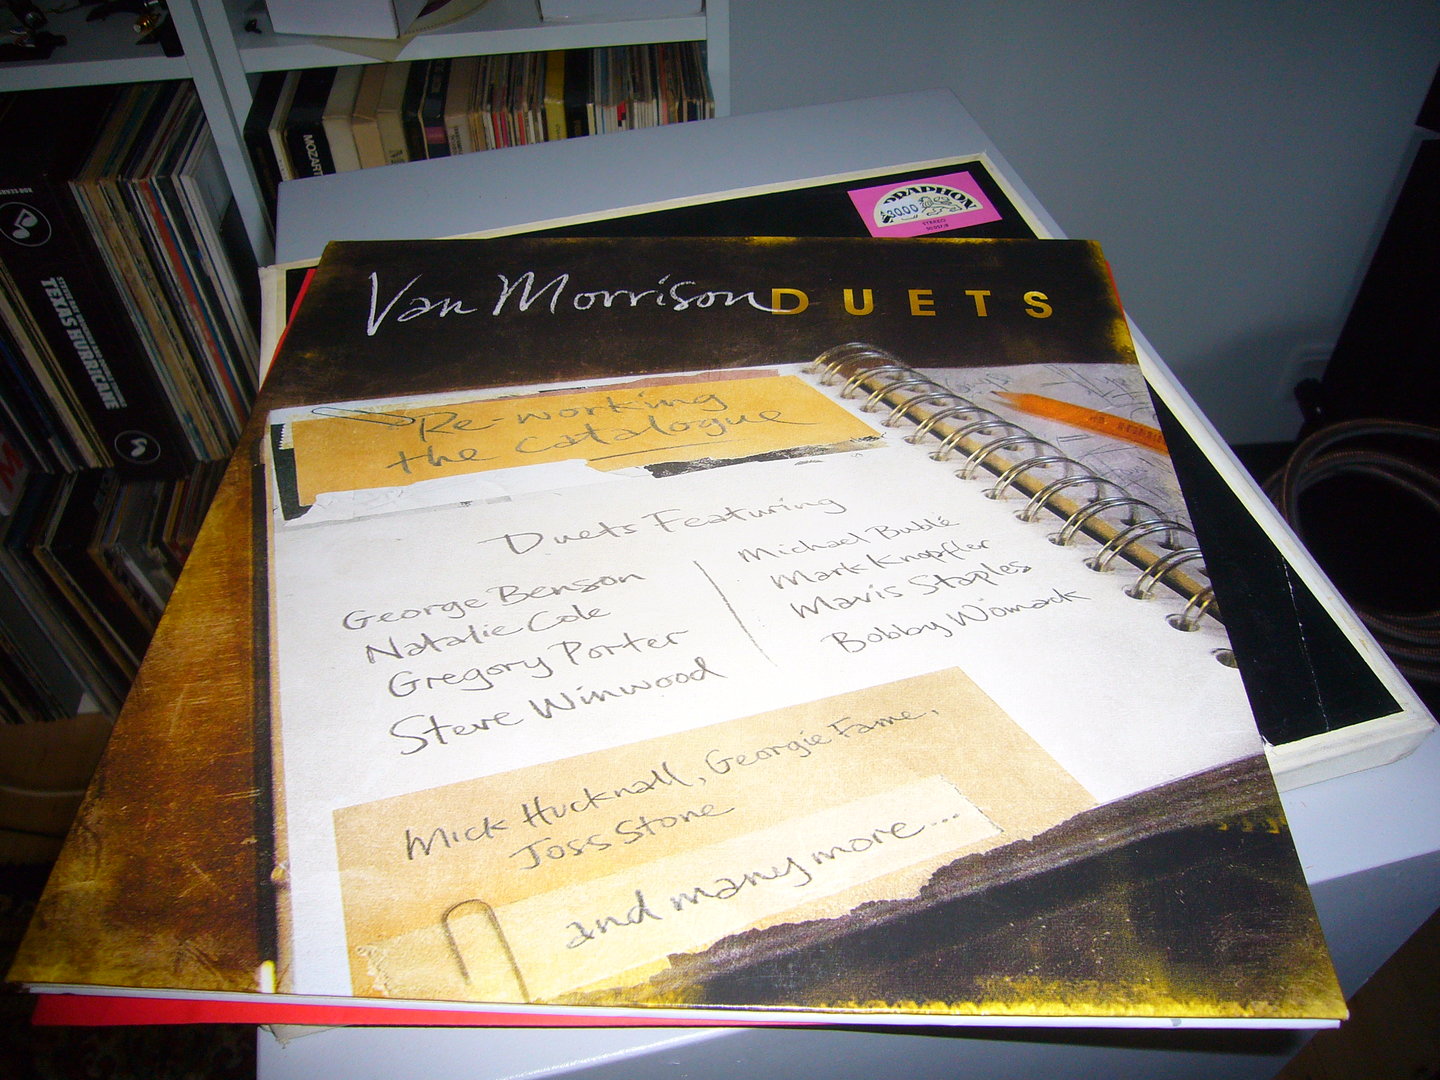 MOZART
TEXAS HURRICANE
SUPRAPHON
30.00
STEREO
Van Morrison DUETS
Re-working
the catalogue
Duets Featuring
George Benson
Natalie Cole
Gregory Porter
Steve Winwood
Michael Bublé
Mark Knopfler
Mavis Staples
Bobby Womack
Mick Hucknall, Georgie Fame,
Joss Stone
and many more...